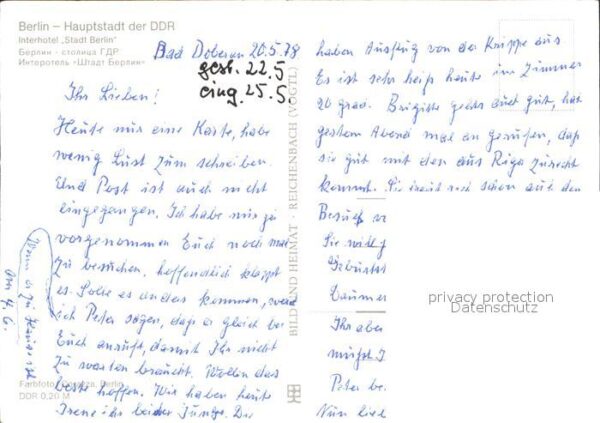 Berlin – Hauptstadt der DDR
Interhotel „Stadt Berlin"
Берлин - столица ГДР
Интеротель «Штадт Берлин»
Bad Doberan 20.5.78
gest. 22.5
eing. 25.5
Ihr Lieben!
Heute nur eine Karte, habe
wenig Lust zum schreiben.
Und Post ist auch nicht
eingegangen. Ich habe mir ja
vorgenommen Euch noch mal
zu besuchen, hoffendlich klappt
es. Solte es anders kommen, werd
ich Peter sagen, daß er gleich bei
Euch anruft, damit Ihr nicht
zu warten braucht. Wollen das
beste hoffen. Wir haben heute
Irene ihr beider Junge. Die
Wenn er zu Hause ist
am 4.6.
haben Ausflug von der Krippe aus
Es ist sehr heiß heute im Zimmer
20 grad. Brigitte gehts auch gut, hat
gestern Abend mal an gerufen, daß
sie gut mit den aus Riga zurecht
kommt. Sie freut sich schon auf den
Besuch
Sie will
Geburtst
Ihr aber
müßt I
Peter be
Nun lieb
BILD UND HEIMAT · REICHENBACH (VOGTL)
privacy protection
Datenschutz
Farbfoto: Berlin
DDR 0,20 M